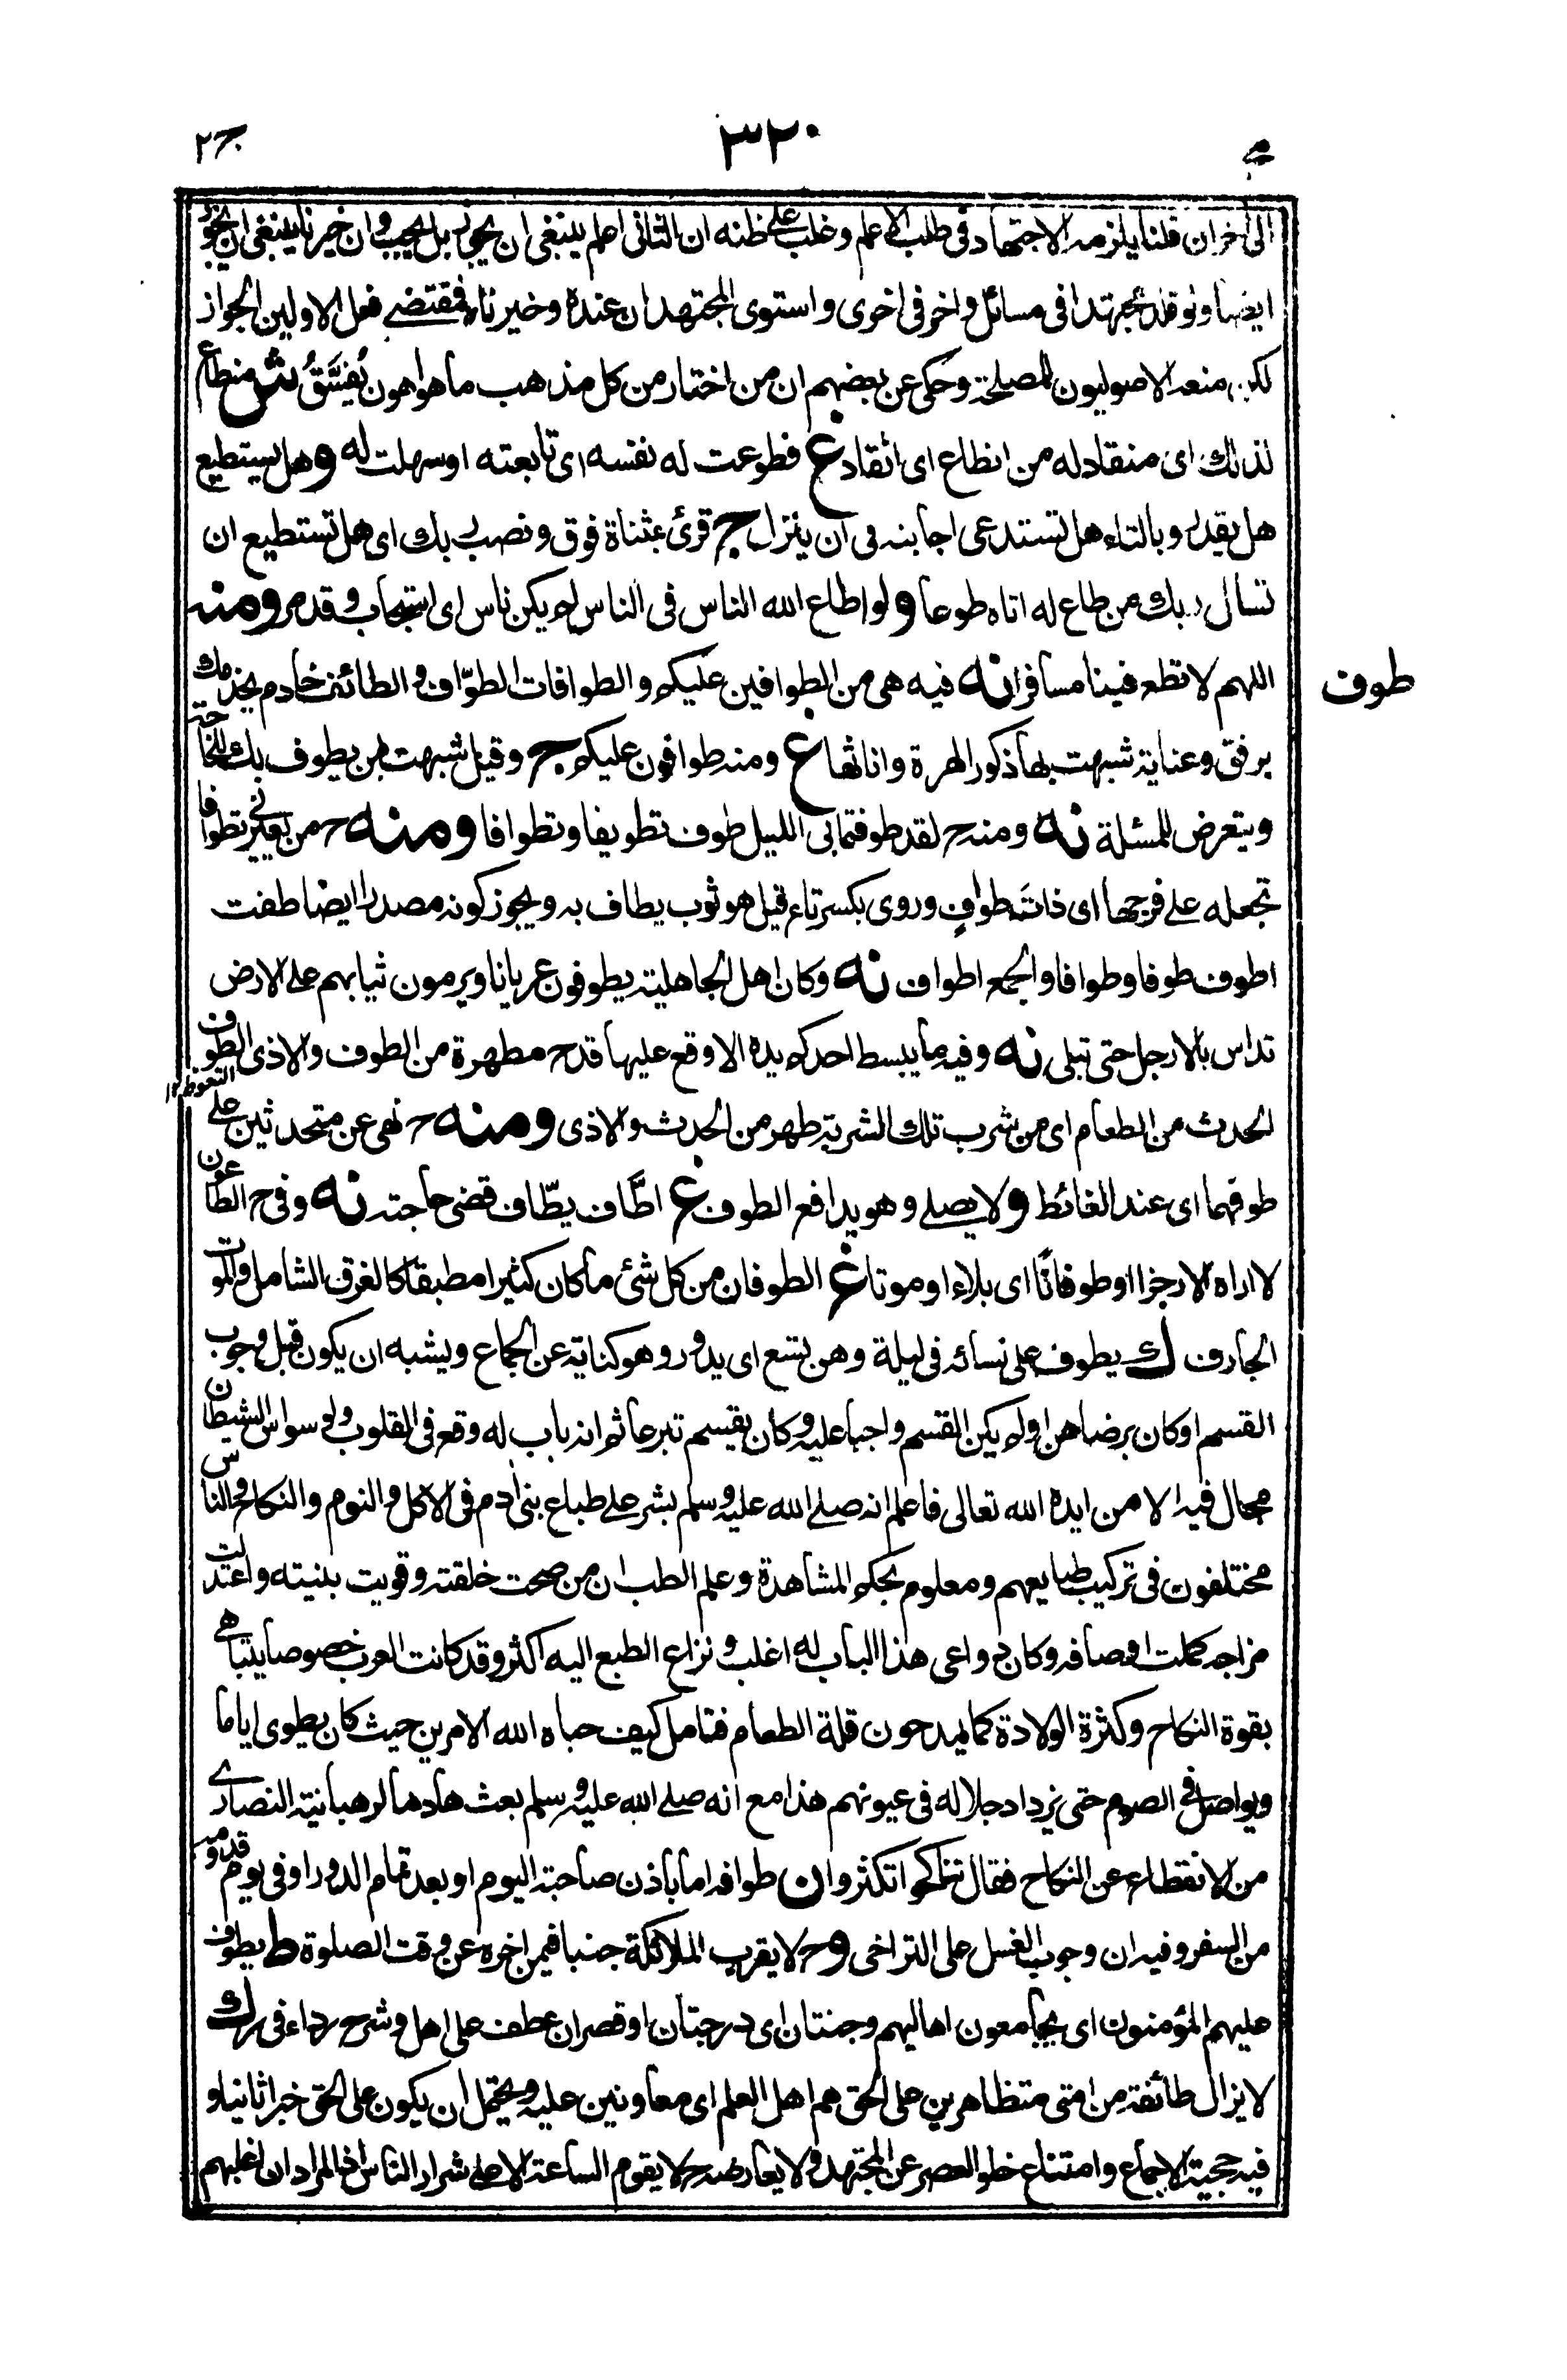 ٣٢٠
الى اخر ان قلنا يلزمه الاجتهاد فى طلب الاعلم وغلب على ظنه ان الثانى اعلم ينبغى ان يجوز بل يجب وان خيرنا ينبغى ان يجوز
ايضا ولو قلد مجتهدا فى مسائل واخر فى اخرى واستوى المجتهدان عنده وخيرناه فمقتضى فعل الاولين الجواز
لكن منعه الاصوليون للمصلحة وحكى عن بعضهم ان من اختار من كل مذهب ما هو اهون يُفسَّقُ ش منطاع
لذلك اى منقاد له من انطاع اى انقاد غ فطوعت له نفسه اى تابعته او سهلت له و هل يستطيع
هل يقدر وبالتاء هل تستدعى اجابته فى ان ينزل ج قرئ بمثناة فوق ونصب ربك اى هل تستطيع ان
تسال ربك من طاع له اتاه طوعا و لو اطاع الله الناس فى الناس لم يكن ناس اى استجاب وقد مر ومنه
اللهم لا تطع فينا مسافرا نه فيه هى من الطوافين عليكم والطوافات الطوّاف و الطائف خادم يخدمك
طوف
برفق وعناية شبهت بها ذكور الهرة واناثها غ ومنه طوافون عليكم ج وقيل شبهت بمن يطوف بك للحاجة
ويتعرض للمسئلة نه ومنه ح لقد طوفتما بى الليل طوف تطويفا وتطوافا ومنه ح من يعيرنى تطوافا
تجعله على فرجها اى ذات طوافٍ وروى بكسر تاء قيل هو ثوب يطاف به ويجوز كونه مصدرا ايضا طفت
اطوف طوفا وطوافا والجمع اطواف نه وكان اهل الجاهلية يطوفون عريانا ويرمون ثيابهم على الارض
تداس بالارجل حتى تبلى نه وفيه ما يبسط احدكم يده الا وقع عليها قدح مطهرة من الطوف والاذى الطوف
التغوط ١٢
الحدث من الطعام اى من شرب تلك الشربة طهر من الحدث والاذى ومنه ح نهى عن متحدثين على
طوفهما اى عند الغائط و لا يصلى وهو يدافع الطوف غ اطَّاف يطّاف قضى حاجته نه وفى ح الطاعون
لا اراه الا رجزا او طوفانًا اى بلاء او موتا غ الطوفان من كل شئ ما كان كثيرا مطبقا كالغرق الشامل والموت
الجارف ك يطوف على نسائه فى ليلة وهن تسع اى يدور وهو كناية عن الجماع ويشبه ان يكون قبل وجوب
القسم او كان برضاهن او لم يكن القسم واجبا عليه وكان يقسم تبرعا ثم انه باب له وقع فى القلوب ولوسواس الشيطان
مجال فيه الا من ايده الله تعالى فاعلم انه صلى الله عليه وسلم بشر على طباع بنى ادم فى الاكل والنوم والنكاح والناس
مختلفون فى تركيب طبايعهم ومعلوم بحكم المشاهدة وعلم الطب ان من صحت خلقته وقويت بنيته واعتدلت
مزاجه كملت اوصافه وكان دواعى هذا الباب له اغلب و نزاع الطبع اليه اكثر وقد كانت العرب خصوصا يتباهى
بقوة النكاح وكثرة الولادة كما يمدحون قلة الطعام فتامل كيف حباه الله الامرين حيث كان يطوى اياما
ويواصل فى الصوم حتى يزداد جلاله فى عيونهم هذا مع انه صلى الله عليه وسلم بعث هادما لرهبانية النصارى
من الانقطاع عن النكاح فقال تناكحوا تكثروا ن طوافه اما باذن صاحبة اليوم او بعد تمام الدور او فى يوم قدومه
من السفر وفيه ان وجوب الغسل على التراخى و ح لا يقرب الملائكة جنبا فيمن اخره عن وقت الصلوة ط يطوف
عليهم المؤمنون اى يجامعون اهاليهم وجنتان اى درجتان او قصران عطف على اهل وشرح رداء فى ر ك
لا يزال طائفة من امتى متظاهرين على الحق هم اهل العلم اى معاونين عليه ويحتمل ان يكون على الحق خبرا ثانيا و
فيه حجية الاجماع وامتناع خلو العصر عن المجتهد ولا يعارضه ح لا يقوم الساعة الا على شرار الناس اذ المراد ان اغلبهم